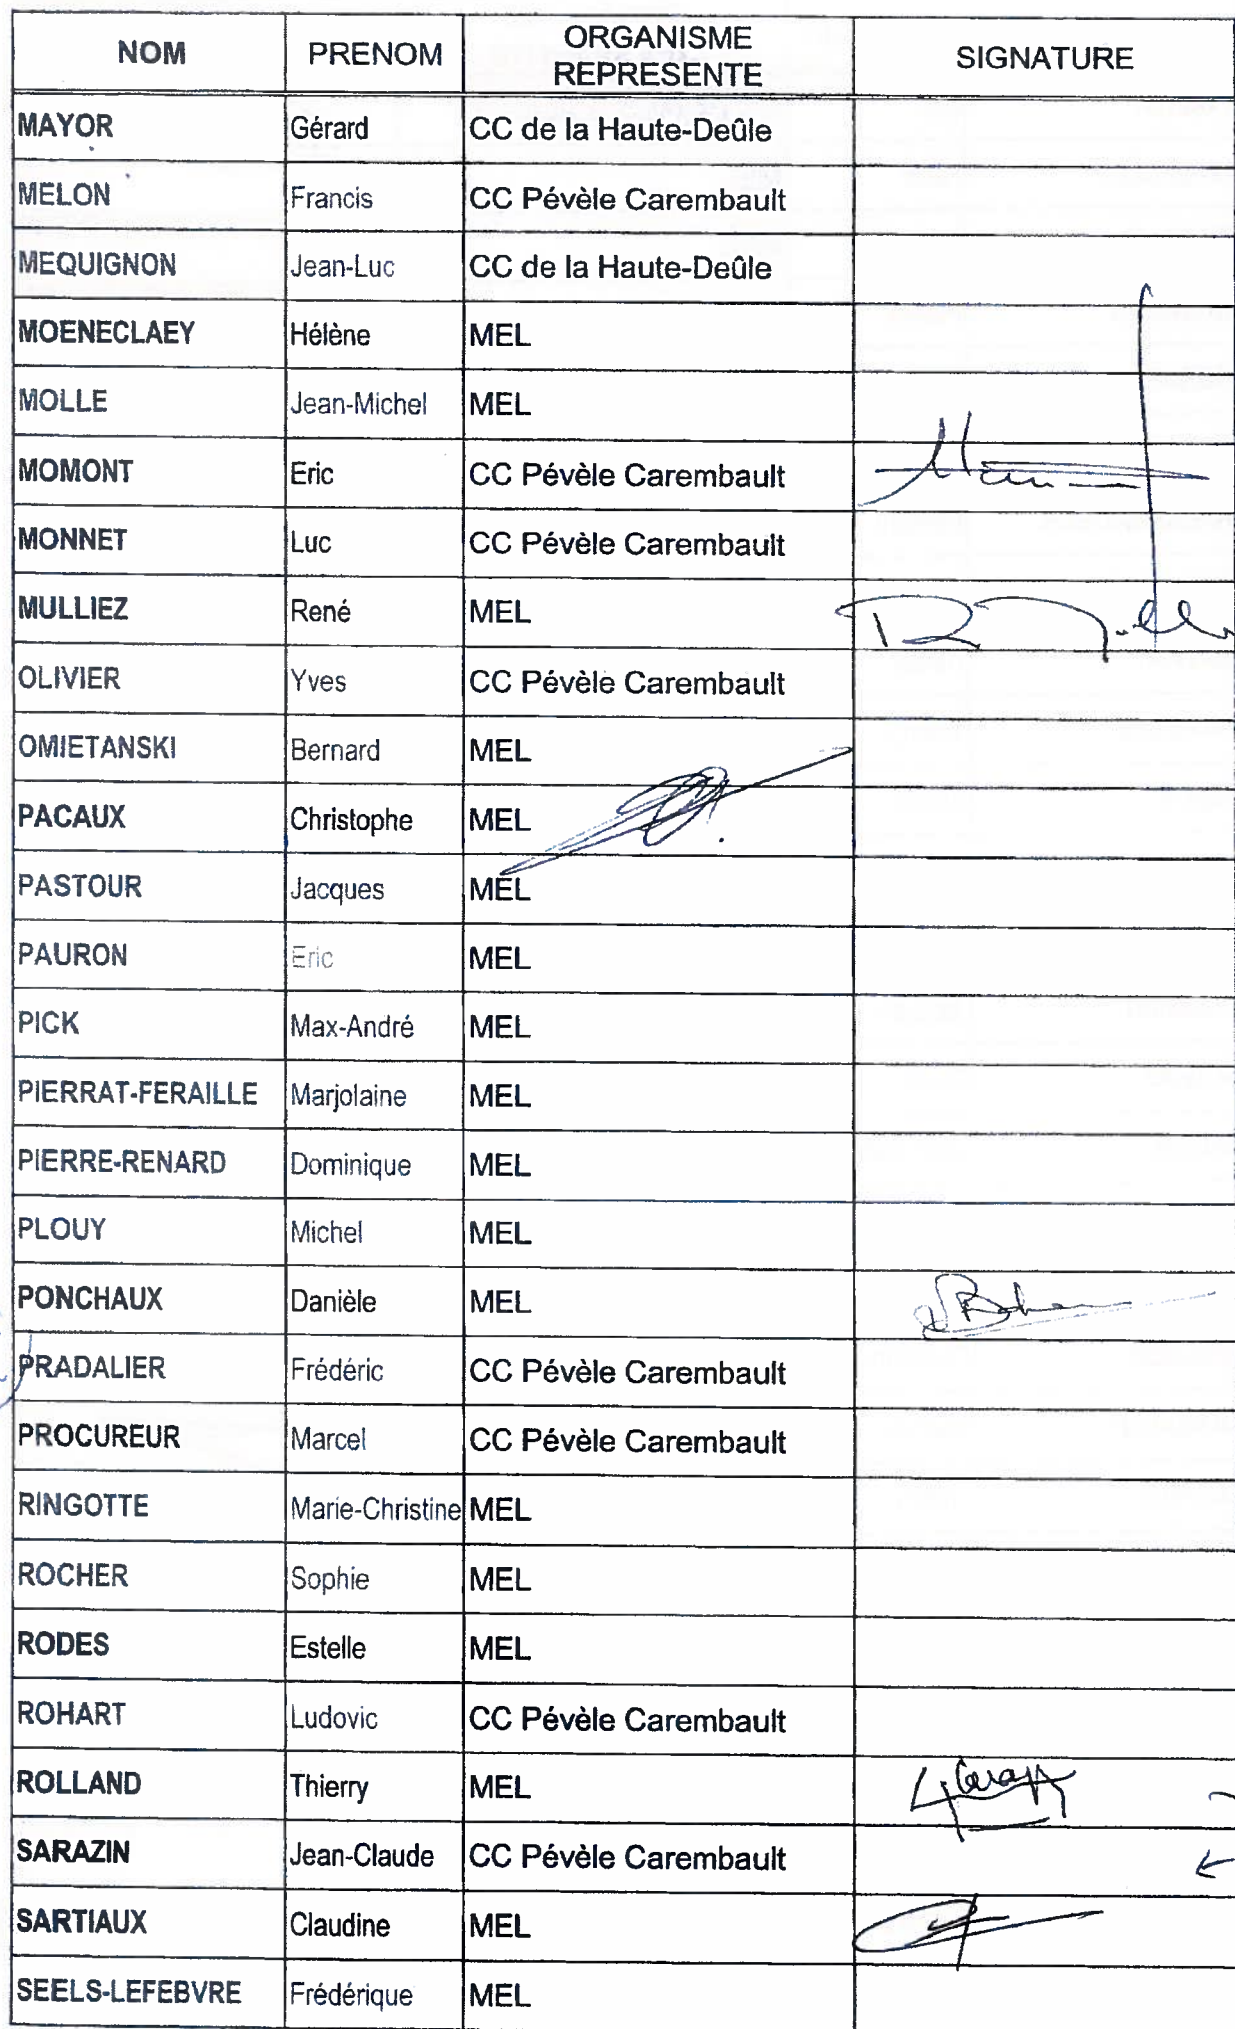 NOM PRENOM ORGANISME REPRESENTE SIGNATURE
MAYOR Gérard CC de la Haute-Deûle
MELON Francis CC Pévèle Carembault
MEQUIGNON Jean-Luc CC de la Haute-Deûle
MOENECLAEY Hélène MEL
MOLLE Jean-Michel MEL
MOMONT Eric CC Pévèle Carembault
MONNET Luc CC Pévèle Carembault
MULLIEZ René MEL
OLIVIER Yves CC Pévèle Carembault
OMIETANSKI Bernard MEL
PACAUX Christophe MEL
PASTOUR Jacques MEL
PAURON Eric MEL
PICK Max-André MEL
PIERRAT-FERAILLE Marjolaine MEL
PIERRE-RENARD Dominique MEL
PLOUY Michel MEL
PONCHAUX Danièle MEL
PRADALIER Frédéric CC Pévèle Carembault
PROCUREUR Marcel CC Pévèle Carembault
RINGOTTE Marie-Christine MEL
ROCHER Sophie MEL
RODES Estelle MEL
ROHART Ludovic CC Pévèle Carembault
ROLLAND Thierry MEL
SARAZIN Jean-Claude CC Pévèle Carembault
SARTIAUX Claudine MEL
SEELS-LEFEBVRE Frédérique MEL